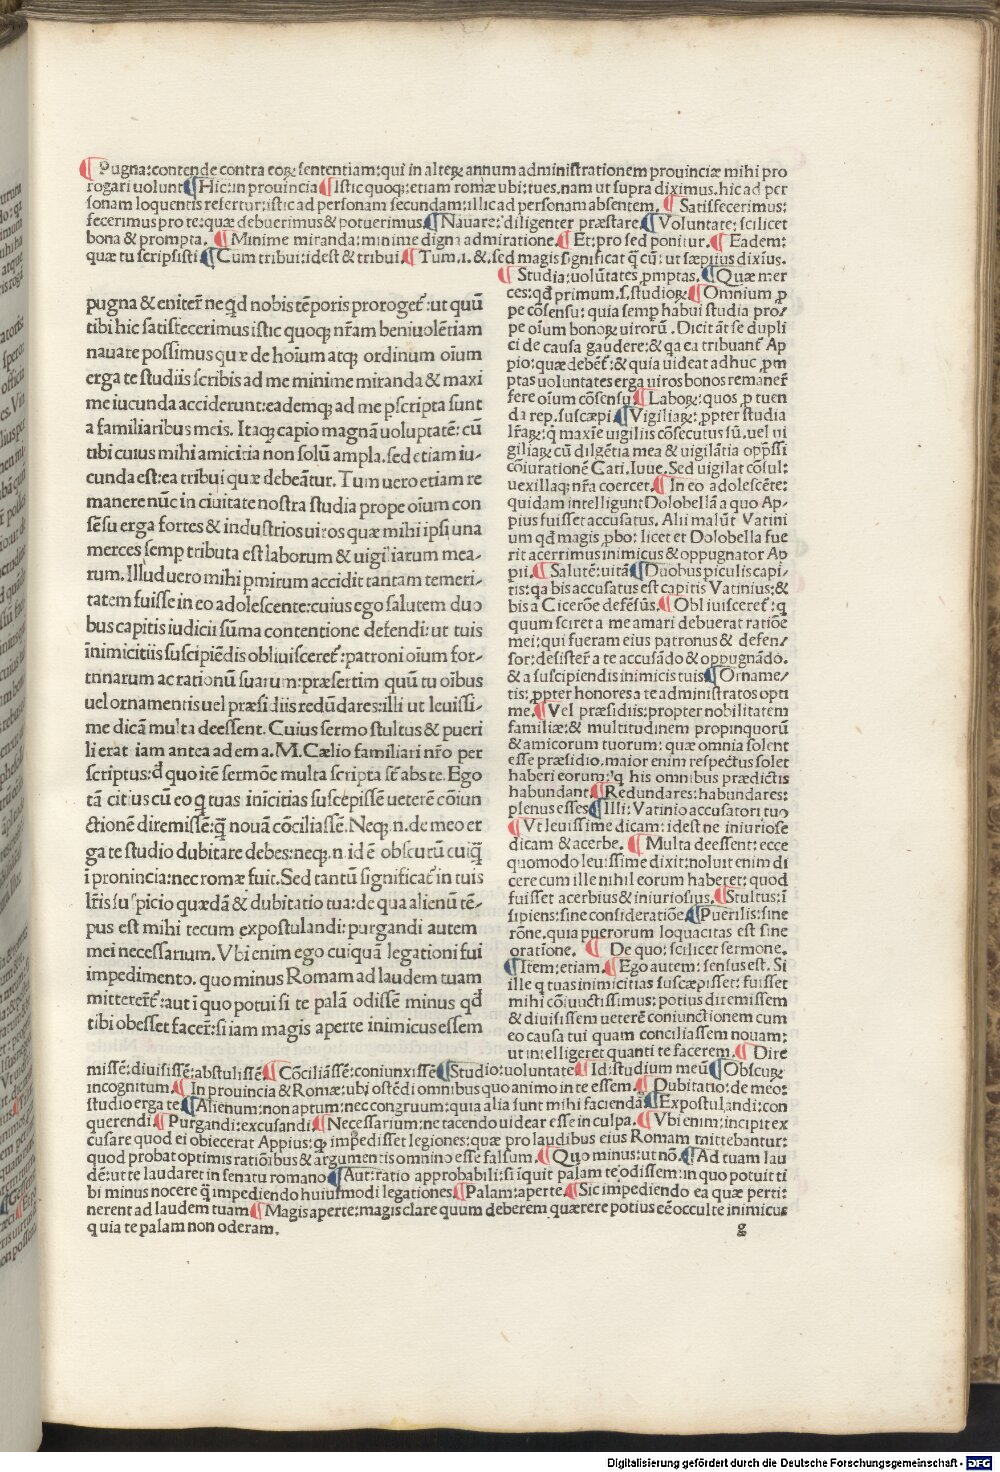 ¶ Pugna: contende contra eoꝝ sententiam: qui in alteꝝ annum administrationem prouinciæ mihi pro
rogari uolunt ¶ Hic: in prouincia ¶ Istic quoqꝫ: etiam romæ ubi: tu es. nam ut supra diximus. hic ad per
sonam loquentis refertur: istic ad personam secundam: illic ad personam absentem. ¶ Satisfecerimus:
fecerimus pro te: quæ debuerimus & potuerimus ¶ Nauare: diligenter præstare ¶ Voluntate: scilicet
bona & prompta. ¶ Minime miranda: minime digna admiratione ¶ Et: pro sed ponitur. ¶ Eadem:
quæ tu scripsisti ¶ Cum tribui: idest & tribui ¶ Tum. i. &. sed magis significat ꝗ̄ cū: ut sæpius dixīus.
pugna & enitere ne qd nobis tēporis proroget: ut quū
tibi hic satisfecerimus istic quoqꝫ nr̄am beniuolētiam
nauare possimus quæ de hoīum atqꝫ ordinum oīum
erga te studiis scribis ad me minime miranda & maxi
me iucunda acciderunt: eademqꝫ ad me pscripta sunt
a familiaribus meis. Itaqꝫ capio magnā uoluptatē: cū
tibi cuius mihi amicitia non solū ampla. sed etiam iu-
cunda est: ea tribui quæ debeātur. Tum uero etiam re
manere nūc in ciuitate nostra studia prope oīum con
sēsu erga fortes & industrios uiros quæ mihi ipsi una
merces semp tributa est laborum & uigiliarum mea-
rum. Illud uero mihi pmirum accidit tantam temeri-
tatem fuisse in eo adolescente: cuius ego salutem duo
bus capitis iudicii sūma contentione defendi: ut tuis
inimicitiis suscipiēdis obliuisceret: patroni oīum for-
tnnarum ac rationū suarum: præsertim quū tu oībus
uel ornamentis uel præsidiis redūdares: illi ut leuissi-
me dicā multa deessent. Cuius sermo stultus & pueri
li erat iam antea ad em a. M. Cælio familiari nr̄o per
scriptus: d̄ quo itē sermōe multa scripta sūt abs te. Ego
tā citius cū eo ꝗ tuas inīcitias suscepissē ueterē cōiun
ctionē diremissē: ꝗ̄ nouā cōciliassē. Neqꝫ. n. de meo er
ga te studio dubitare debes: neqꝫ. n. id ē obscurū cuiꝗ̄
ī prouincia: nec romæ fuit. Sed tantū significat in tuis
lr̄is suspicio quædā & dubitatio tua: de qua alienū tē-
pus est mihi tecum expostulandi: purgandi autem
mei necessarium. Vbi enim ego cuiquā legationi fui
impedimento. quo minus Romam ad laudem tuam
mitteretur: aut ī quo potui si te palā odissē minus qd
tibi obesset facere: si iam magis aperte inimicus essem
¶ Studia: uolūtates pmptas. ¶ Quæ mer
ces: qd primum. s. studioꝝ. ¶ Omnium p
pe cōsensu: quia semp habui studia pro-
pe oīum bonoꝝ uirorū. Dicit āt se dupli
ci de causa gaudere: & qa ea tribuant Ap
pio: quæ debet: & quia uideat adhuc pm
ptas uoluntates erga uiros bonos remanere
fere oīum cōsensu ¶ Laboꝝ: quos p tuen
da rep. suscæpi ¶ Vigiliaꝝ: ppter studia
lr̄aꝝ: q̄ maxīe uigiliis cōsecutus sū. uel ui
giliaꝝ cū diligētia mea & uigilātia oppssi
cōiurationē Cati. Iuue. Sed uigilat cōsul:
uexillaqꝫ nr̄a coercet. ¶ In eo adolescēte:
quidam intelligunt Dolobellā a quo Ap-
pius fuisset accusatus. Alii malūt Vatini
um qd magis pbo: licet et Dolobella fue
rit acerrimus inimicus & oppugnator Ap
pii. ¶ Salutē: uitā ¶ Duobus piculis capi-
tis: qa bis accusatus est capitis Vatinius: &
bis a Cicerōe defēsus. ¶ Obliuisceret: q
quum sciret a me amari debuerat ratiōe
mei: qui fueram eius patronus & defen-
sor: desistere a te accusādo & oppugnādo.
& a suscipiendis inimicis tuis ¶ Ornamē-
tis: ppter honores a te administratos opti
me. ¶ Vel præsidiis: propter nobilitatem
familiæ: & multitudinem propinquorū
& amicorum tuorum: quæ omnia solent
esse præsidio. maior enim respectus solet
haberi eorum: q his omnibus prædictis
habundant. ¶ Redundares: habundares:
plenus esses ¶ Illi: Vatinio accusatori tuo
¶ Vt leuissime dicam: idest ne iniuriose
dicam & acerbe. ¶ Multa deessent: ecce
quomodo leuissime dixit: noluit enim di
cere cum ille nihil eorum haberet: quod
fuisset acerbius & iniuriosius. ¶ Stultus: ī
sipiens: sine consideratiōe ¶ Puerilis: sine
rōne. quia puerorum loquacitas est sine
oratione. ¶ De quo: scilicet sermone.
¶ Item: etiam. ¶ Ego autem: sensus est. Si
ille q tuas inimicitias suscæpisset: fuisset
mihi cōiūctissimus: potius diremissem
& diuisissem ueterē coniunctionem cum
eo causa tui quam conciliassem nouam:
ut intelligeret quanti te facerem. ¶ Dire
missē: diuisissē: abstulissē ¶ Cōciliāssē: coniunxissē ¶ Studio: uoluntate ¶ Id: studium meū ¶ Obscuꝝ:
incognitum. ¶ In prouincia & Romæ: ubi ostēdi omnibus quo animo in te essem. ¶ Dubitatio: de meo:
studio erga te ¶ Alienum: non aptum: nec congruum: quia alia sunt mihi faciendā ¶ Expostulandi: con
querendi ¶ Purgandi: excusandi ¶ Necessarium: ne tacendo uidear esse in culpa. ¶ Vbi enim: incipit ex
cusare quod ei obiecerat Appius: qꝫ impedisset legiones: quæ pro laudibus eius Romam mittebantur:
quod probat optimis ratiōibus & argumentis omnino esse falsum. ¶ Quo minus: ut nō. ¶ Ad tuam lau
dē: ut te laudaret in senatu romano ¶ Aut: ratio approbabili: si īquit palam te odissem: in quo potui ti
bi minus nocere ꝗ̄ impediendo huiusmodi legationes ¶ Palam: aperte. ¶ Sic impediendo ea quæ perti-
nerent ad laudem tuam ¶ Magis aperte: magis clare quum deberem quærere potius eē occulte inimicus
quia te palam non oderam.
g
Digitalisierung gefördert durch die Deutsche Forschungsgemeinschaft - DFG